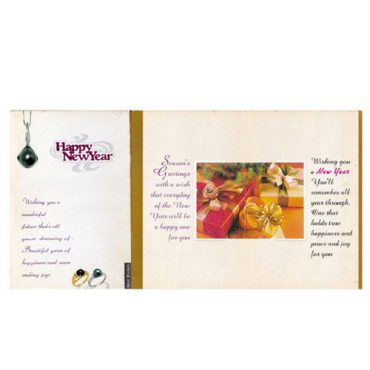 Happy
New Year
Wishing you a
wonderful
future that's all
you're dreaming of -
Beautiful years of
happiness and never
ending joys
Season's
Greetings
with a wish
that everyday
of the New
Year will be
a happy one
for you
Wishing you
a New Year
You'll
remember all
year through,
One that
holds true
happiness and
peace and joy
for you